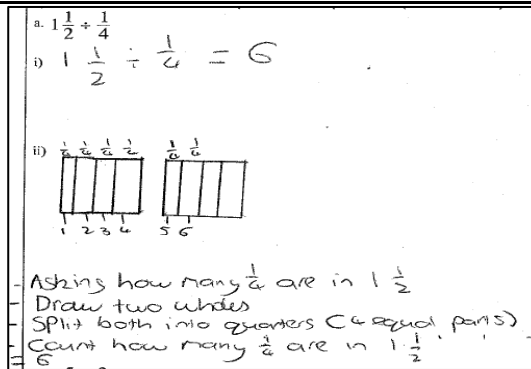 a. 1 1/2 ÷ 1/4
i) 1 1/2 ÷ 1/4 = 6
ii) 1/4 1/4 1/4 1/4 1/4 1/4
1 2 3 4 5 6
- Asking how many 1/4 are in 1 1/2
- Draw two wholes
- Split both into quarters (4 equal parts)
- Count how many 1/4 are in 1 1/2
= 6